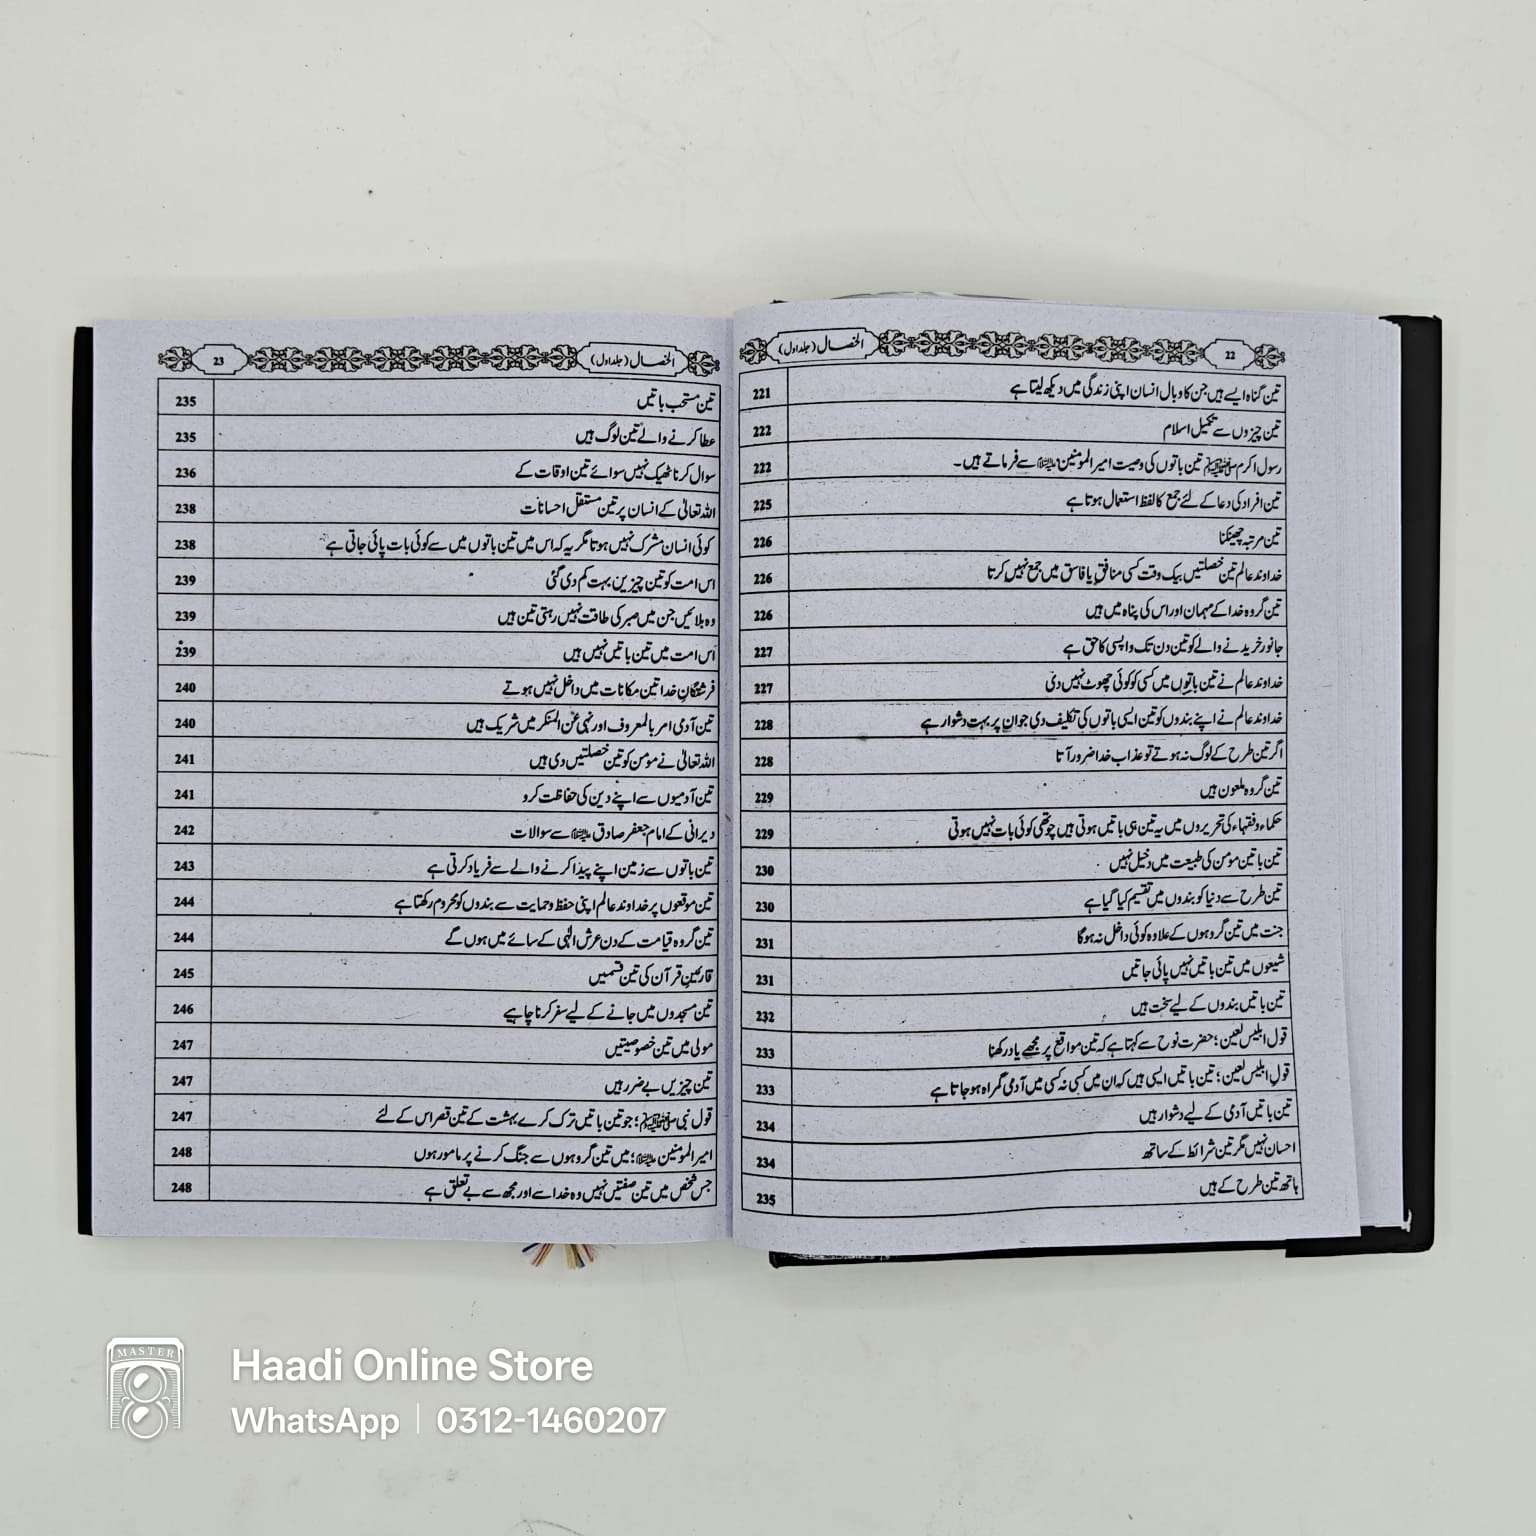 22
الخصال (جلد اول)
تین گناہ ایسے ہیں جن کا وبال انسان اپنی زندگی میں دیکھ لیتا ہے 221
تین چیزوں سے تکمیل اسلام 222
رسول اکرم ﷺ تین باتوں کی وصیت امیر المومنین علیہ السلام سے فرماتے ہیں۔ 222
تین افراد کی دعا کے لئے جمع کا لفظ استعمال ہوتا ہے 225
تین مرتبہ چھینکنا 226
خداوند عالم تین خصلتیں بیک وقت کسی منافق یا فاسق میں جمع نہیں کرتا 226
تین گروہ خدا کے مہمان اور اس کی پناہ میں ہیں 226
جانور خریدنے والے کو تین دن تک واپسی کا حق ہے 227
خداوند عالم نے تین باتوں میں کسی کو کوئی چھوٹ نہیں دی 227
خداوند عالم نے اپنے بندوں کو تین ایسی باتوں کی تکلیف دی جو ان پر بہت دشوار ہے 228
اگر تین طرح کے لوگ نہ ہوتے تو عذاب خدا ضرور آتا 228
تین گروہ ملعون ہیں 229
حکماء و فقہاء کی تحریروں میں یہ تین ہی باتیں ہوتی ہیں چوتھی کوئی بات نہیں ہوتی 229
تین باتیں مومن کی طبیعت میں دخیل نہیں 230
تین طرح سے دنیا کو بندوں میں تقسیم کیا گیا ہے 230
جنت میں تین گروہوں کے علاوہ کوئی داخل نہ ہوگا 231
شیعوں میں تین باتیں نہیں پائی جاتیں 231
تین باتیں بندوں کے لیے سخت ہیں 232
قول ابلیس لعین؛ حضرت نوح سے کہتا ہے کہ تین مواقع پر مجھے یاد رکھنا 233
قول ابلیس لعین؛ تین باتیں ایسی ہیں کہ ان میں کسی نہ کسی میں آدمی گمراہ ہو جاتا ہے 233
تین باتیں آدمی کے لیے دشوار ہیں 234
احسان نہیں مگر تین شرائط کے ساتھ 234
ہاتھ تین طرح کے ہیں 235
الخصال (جلد اول)
23
تین مستحب باتیں 235
عطا کرنے والے تین لوگ ہیں 235
سوال کرنا ٹھیک نہیں سوائے تین اوقات کے 236
اللہ تعالیٰ کے انسان پر تین مستقل احسانات 238
کوئی انسان مشرک نہیں ہوتا مگر یہ کہ اس میں تین باتوں میں سے کوئی بات پائی جاتی ہے 238
اس امت کو تین چیزیں بہت کم دی گئی 239
وہ بلائیں جن میں صبر کی طاقت نہیں رہتی تین ہیں 239
اس امت میں تین باتیں نہیں ہیں 239
فرشتگانِ خدا تین مکانات میں داخل نہیں ہوتے 240
تین آدمی امر بالمعروف اور نہی عن المنکر میں شریک ہیں 240
اللہ تعالیٰ نے مومن کو تین خصلتیں دی ہیں 241
تین آدمیوں سے اپنے دین کی حفاظت کرو 241
دیرانی کے امام جعفر صادق علیہ السلام سے سوالات 242
تین باتوں سے زمین اپنے پیدا کرنے والے سے فریاد کرتی ہے 243
تین موقعوں پر خداوند عالم اپنی حفظ و حمایت سے بندوں کو محروم رکھتا ہے 244
تین گروہ قیامت کے دن عرش الٰہی کے سائے میں ہوں گے 244
قارئینِ قرآن کی تین قسمیں 245
تین مسجدوں میں جانے کے لیے سفر کرنا چاہیے 246
مولی میں تین خصوصیتیں 247
تین چیزیں بے ضرر ہیں 247
قول نبی ﷺ؛ جو تین باتیں ترک کرے بہشت کے تین قصر اس کے لئے 247
امیر المومنین علیہ السلام؛ میں تین گروہوں سے جنگ کرنے پر مامور ہوں 248
جس شخص میں تین صفتیں نہیں وہ خدا سے اور مجھ سے بے تعلق ہے 248
MASTER
Haadi Online Store
WhatsApp | 0312-1460207